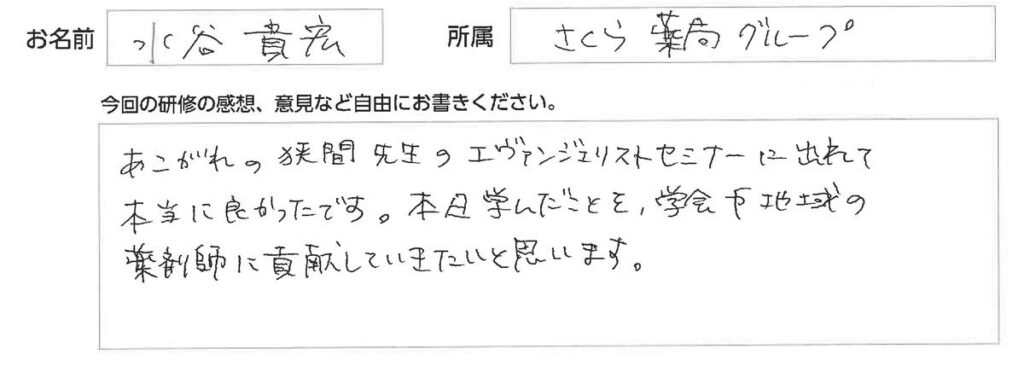 お名前 水谷 貴宏 所属 さくら薬局グループ
今回の研修の感想、意見など自由にお書きください。
あこがれの狭間先生のエヴァンジェリストセミナーに出れて
本当に良かったです。本日学んだことを、学会や地域の
薬剤師に貢献していきたいと思います。